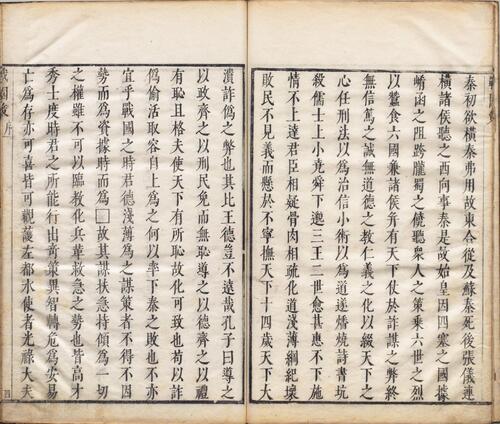 秦初欲橫秦弗用故東合從及蘇秦死後張儀連
橫諸侯聽之西向事秦是故始皇因四塞之國據
崤函之阻跨隴蜀之饒聽衆人之策乘六世之烈
以蠶食六國兼諸侯并有天下仗於詐謀之弊終
無信篤之誠無道德之教仁義之化以綴天下之
心任刑法以爲治信小術以爲道遂燔燒詩書坑
殺儒士上小堯舜下邈三王二世愈甚惠不下施
情不上達君臣相疑骨肉相疏化道淺薄綱紀壞
敗民不見義而懸於不寧撫天下十四歲天下大
潰詐僞之弊也其比王德豈不遠哉孔子曰導之
以政齊之以刑民免而無恥導之以德齊之以禮
有恥且格夫使天下有所恥故化可致也苟以詐
僞偷活取容自上爲之何以率下秦之敗也不亦
宜乎戰國之時君德淺薄爲之謀策者不得不因
勢而爲資據時而爲□故其謀扶急持傾爲一切
之權雖不可以臨教化兵革救急之勢也皆高才
秀士度時君之所能行出奇策異智轉危爲安易
亡爲存亦可喜皆可觀護左都水使者光祿大夫
戰國策 序 四